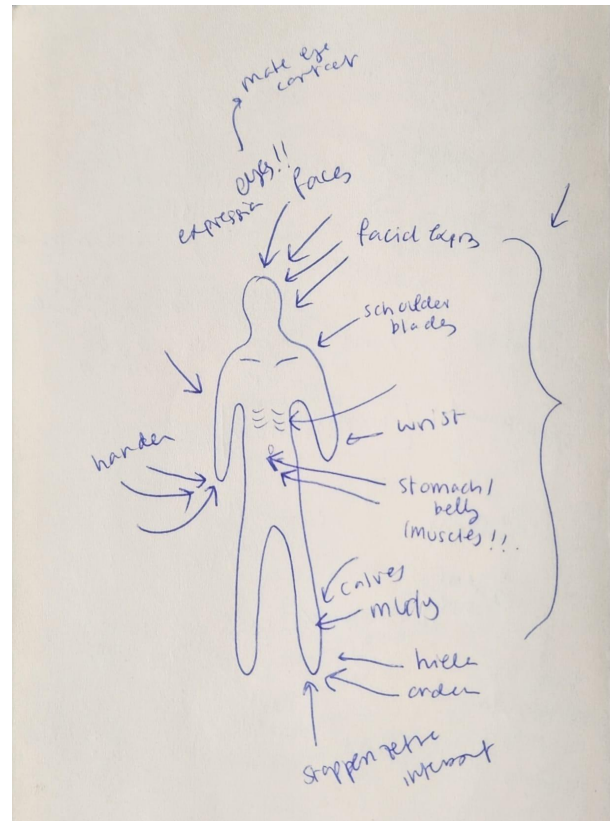 make eye
contact
eyes!!
expressia
faces
facial
schoulder
blades
wrist
handen
stomach/
belly
(muscles!!.
calves
stappen zette